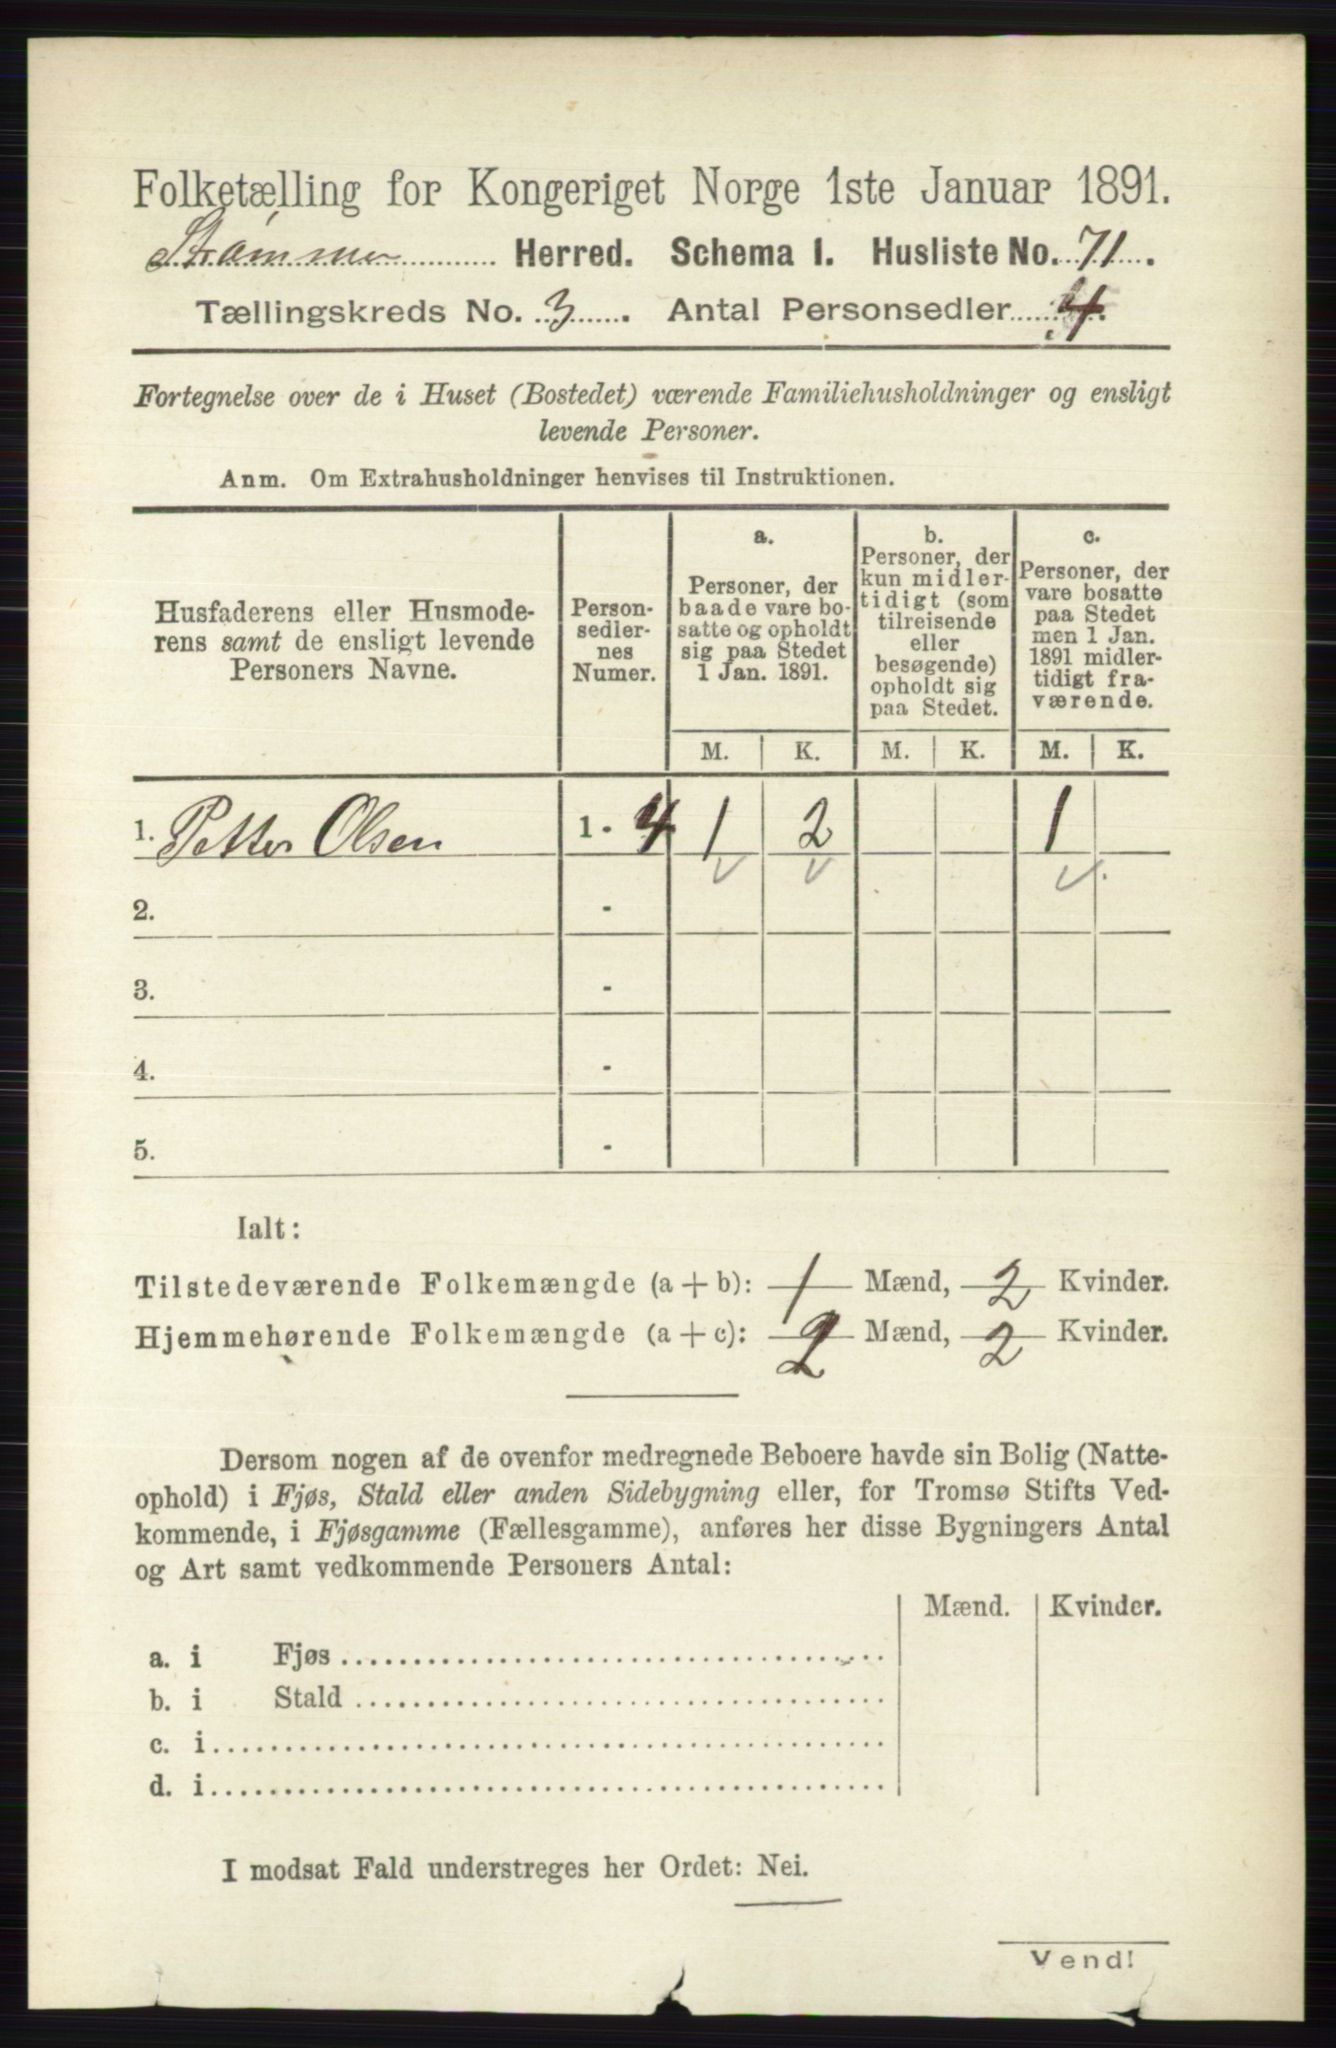 Folketælling for Kongeriget Norge 1ste Januar 1891.
Strømmen Herred. Schema 1. Husliste No. 71.
Tællingskreds No. 3. Antal Personsedler 4.
Fortegnelse over de i Huset (Bostedet) værende Familiehusholdninger og ensligt
levende Personer.
Anm. Om Extrahusholdninger henvises til Instruktionen.
Husfaderens eller Husmode-
rens samt de ensligt levende
Personers Navne.
Person-
sedler-
nes
Numer.
a.
Personer, der
baade vare bo-
satte og opholdt
sig paa Stedet
1 Jan. 1891.
b.
Personer, der
kun midler-
tidigt (som
tilreisende
eller
besøgende)
opholdt sig
paa Stedet.
c.
Personer, der
vare bosatte
paa Stedet
men 1 Jan.
1891 midler-
tidigt fra-
værende.
M. K. M. K. M. K.
1. Petter Olsen 1 - 4 1 2 1
2. -
3. -
4. -
5. -
Ialt:
Tilstedeværende Folkemængde (a + b): 1 Mænd, 2 Kvinder.
Hjemmehørende Folkemængde (a + c): 2 Mænd, 2 Kvinder.
Dersom nogen af de ovenfor medregnede Beboere havde sin Bolig (Natte-
ophold) i Fjøs, Stald eller anden Sidebygning eller, for Tromsø Stifts Ved-
kommende, i Fjøsgamme (Fællesgamme), anføres her disse Bygningers Antal
og Art samt vedkommende Personers Antal:
Mænd. Kvinder.
a. i Fjøs
b. i Stald
c. i
d. i
I modsat Fald understreges her Ordet: Nei.
Vend!